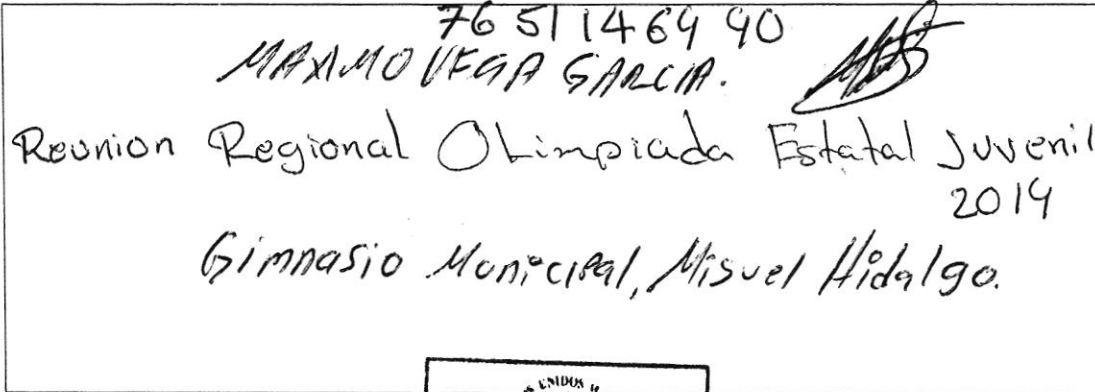 76 51 14 69 90
MAXIMO VEGA GARCIA.
Reunion Regional Olimpiada Estatal Juvenil
2019
Gimnasio Municipal, Misuel Hidalgo.
UNIDOS